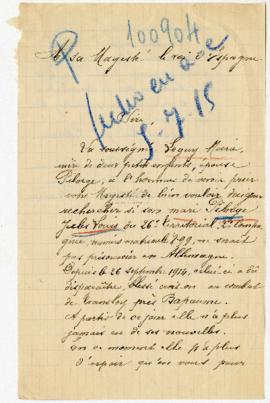 100904
A sa Magesté le roi d'Espagne
5-7-15
Sire,
La soussigné Seguy Maria,
mère de deux petits enfants, épouse
Pélorge, a l'honneur de venir prier
votre Magesté de bien vouloir daigner
rechercher si son mari Pélorge
Jules Louis du 26e territorial, 2e compa
gnie, numéro matricule 799, ne serait
pas prisonnier en Allemagne.
Depuis le 26 septembre 1914, celui-ci a dû
disparaître, blessé croit-on au combat
de près Bapaume.
A partir de ce jour elle n'a plus
jamais eu de ses nouvelles.
En ce moment elle n'a plus
d'espoir qu'en vous pour